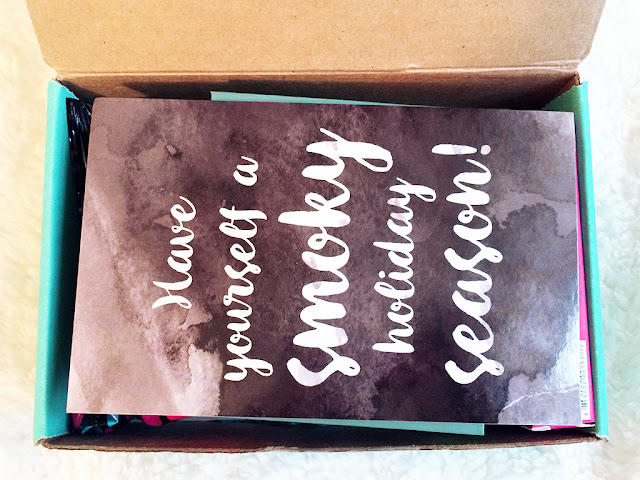 Have
yourself a
smoky
holiday
season!